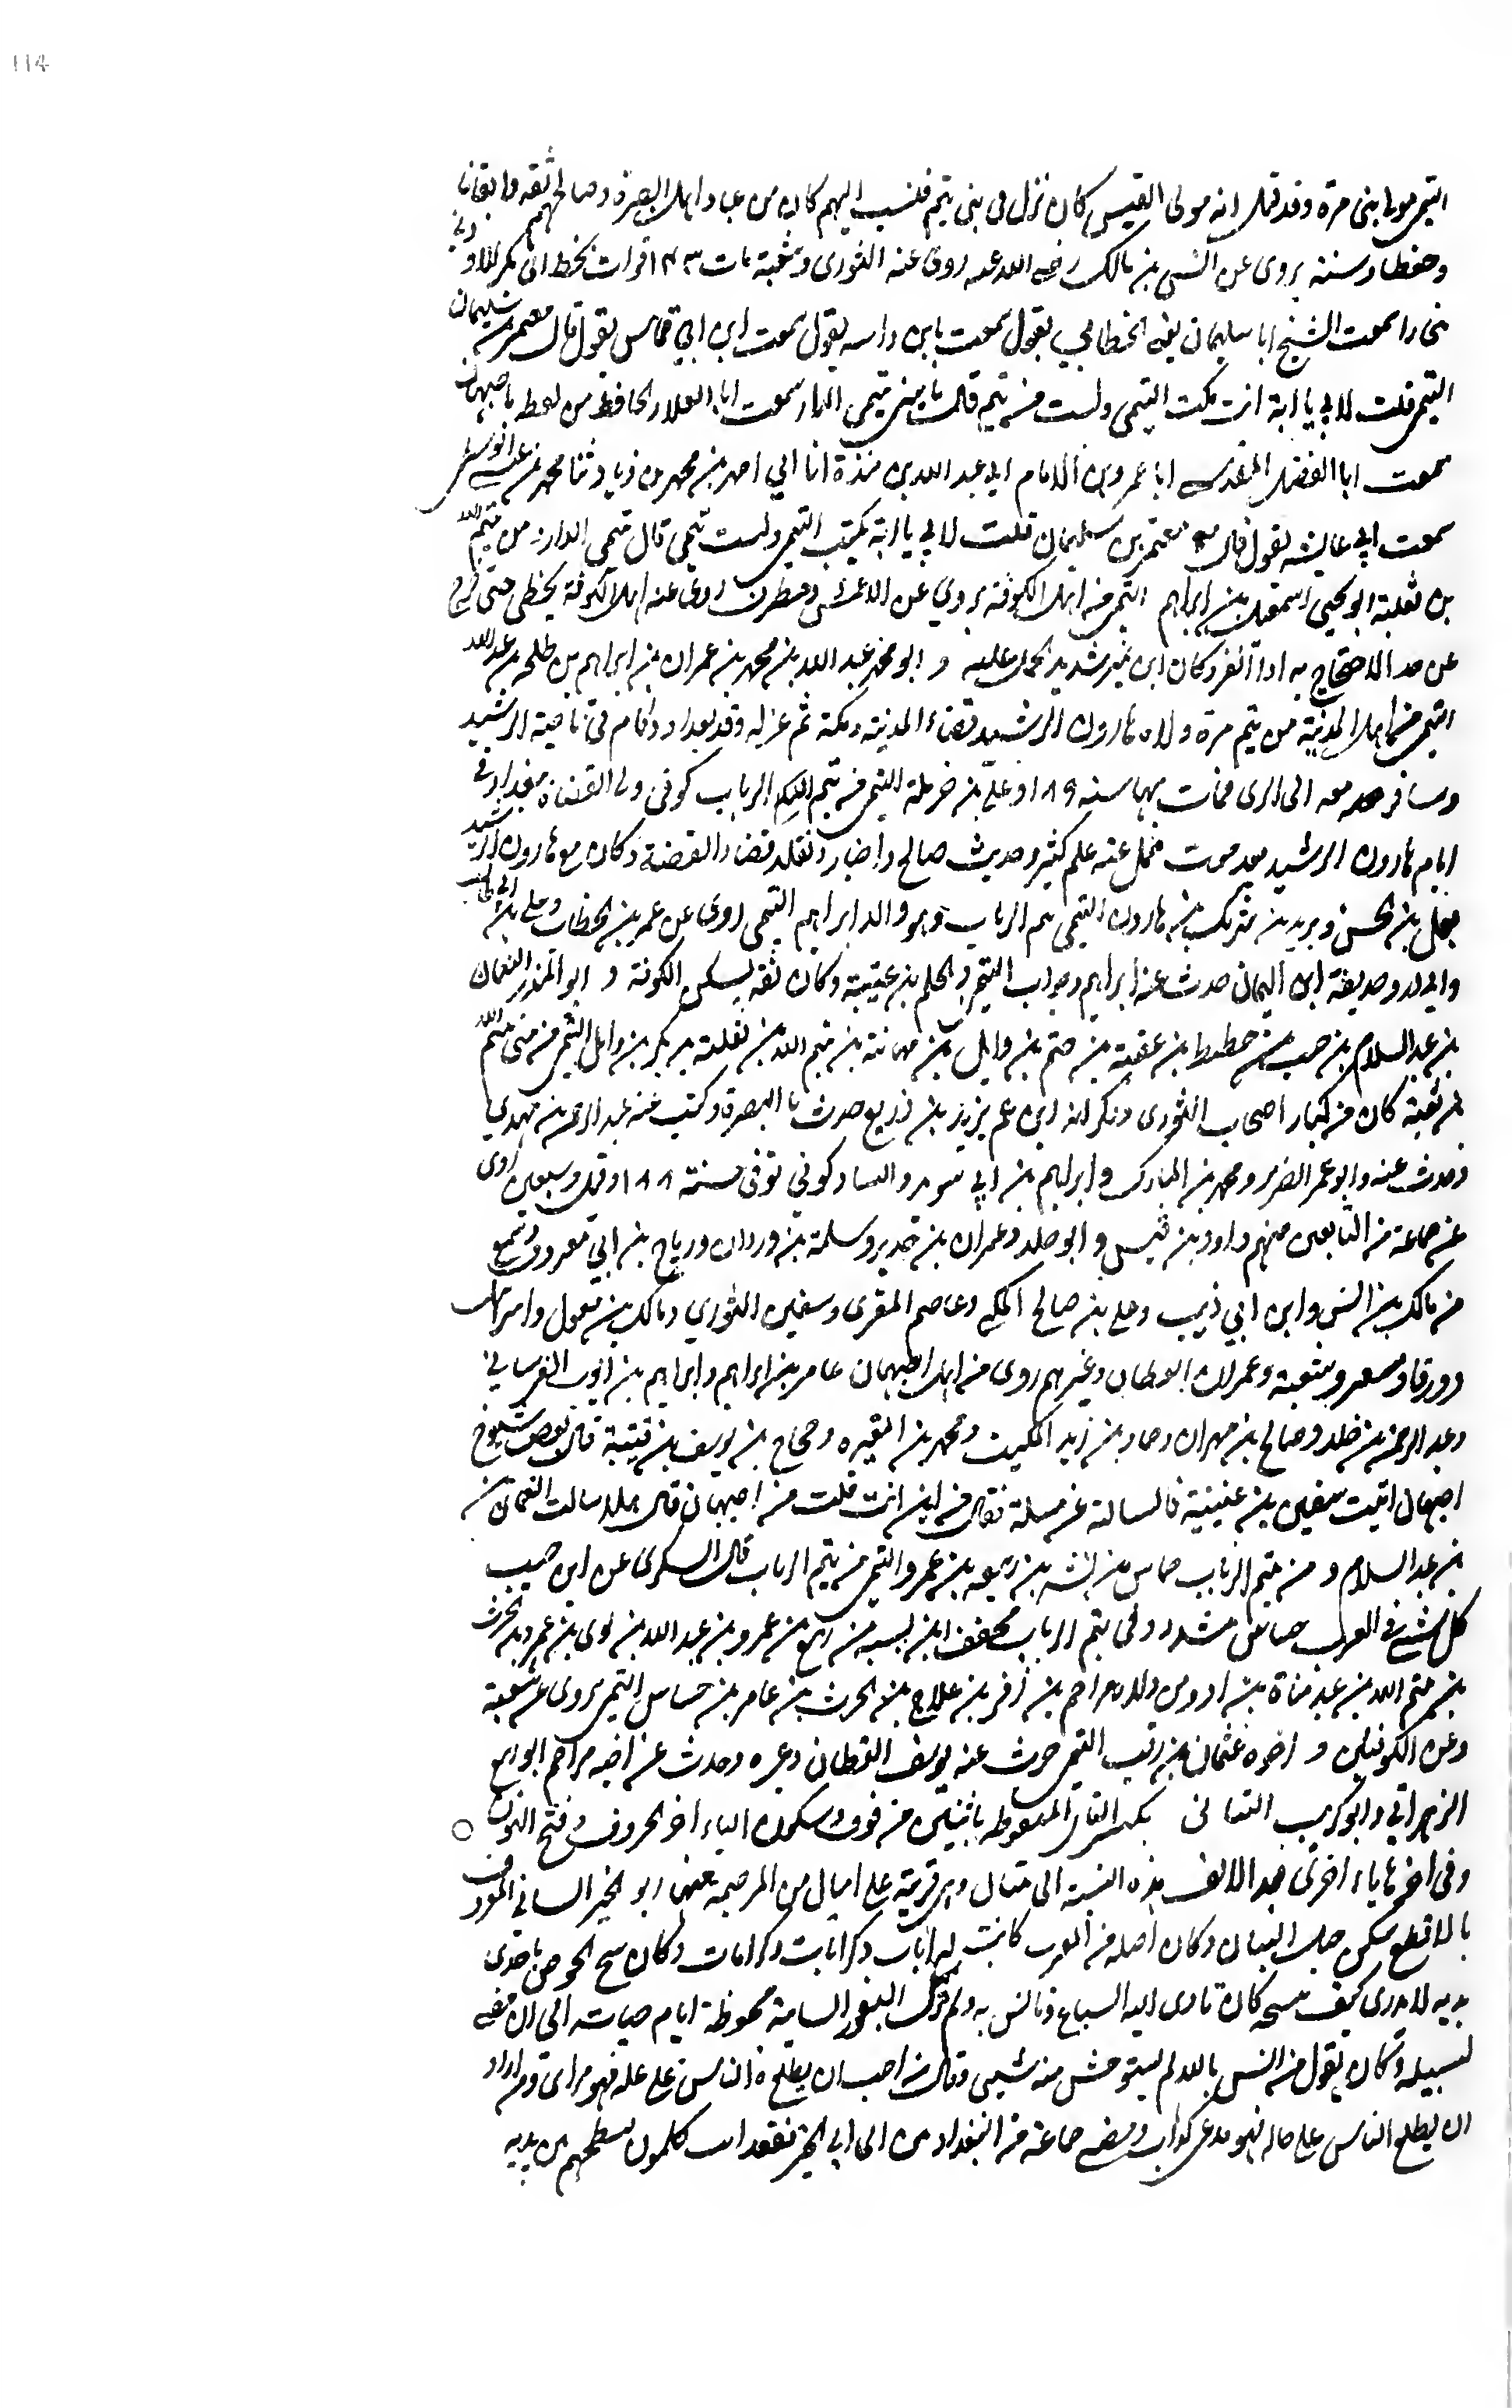 114
التيمي مولى بنى مرة وقد قيل انه مولى القيس كان نزل فى بنى تيم فنسب اليهم كان من عباد اهل البصرة وصالحيهم ثقه واتقانا
وحفظا وسنة يروى عن انس بن مالك رضي الله عنه روى عنه الثورى وشعبة مات ١٤٣ قرات بخط ابى بكر الاودنى
بخارا سمعت الشيخ ابا سليمان يعنى الخطابي يقول سمعت ابن داسه يقول سمعت ابن ابي قماس يقول قال معتمر بن سليمان
التيمى قلت لابي يا ابة انت تكتب التيمى ولست من تيم قال يا بنى تيمى الدار سمعت ابا العلاء الحافظ من لفظه باصبهان
سمعت ابا الفضل المقدسى ابا عمرو بن الامام ابى عبد الله بن مندة انا ابي احمد بن محمد بن زياد ثنا محمد بن
سمعت ابى عايشه يقول قال معتمر بن سليمان قلت لابي يا ابة تكتب التيمى ولست تيمي قال تيمى الدار من تيم الله
بن ثعلبة ابو يحيى اسمعيل بن ابراهيم التيمى من اهل الكوفة يروي عن الاعمش ومطرف روى عنه اهل الكوفة يخطى حتى خرج
عن حد الاحتجاج به اذا انفرد كان ابن نمير شديد الحمل عليه و ابو محمد عبد الله بن محمد بن عمران بن ابراهيم بن طلحه بن عبد الله
التيمى من اهل المدينة من تيم مرة ولاه هارون الرشيد قضاء المدينة ومكة ثم عزله وقدم بغداد واقام فى ناحية الرشيد
وسافر معه الى الرى فمات بها سنه ١٨٩ وعلى بن حرملة التيمى من تيم الرباب كوفى ولى القضاة بغداد فى
ايام هارون الرشيد بعد موت حمل عنه علم كثير وحديث صالح واخبار وتقلد قضاء القضة وكان مع هارون الرشيد
محمد بن الحسن ويزيد بن شريك بن هارون التيمى تيم الرباب وهو والد ابراهيم التيمى روى عن عمر بن الخطاب وعلى بن ابي طالب
وابى ذر وحذيفة ابن اليمان حدث عنه ابراهيم وجواب التيمى والحكم بن عتيبة وكان ثقه يسكن الكوفة و ابو المنذر النعمان
بن عبد السلام بن حبيب بن حطيط بن عقبة بن جثم بن وايل بن مهانة بن تيم الله بن ثعلبة بن بكر بن وايل التيمى من بنى تيم الله
بن ثعلبة كان من كبار اصحاب الثورى وذكر انه ابن عم يزيد بن زريع حدث بالبصرة وكتب عنه عبد الرحمن بن مهدي
وحدث عنه وابو عمر الضرير ومحمد بن المبارك وابراهيم بن ابي سويد والشاذكوني توفى سنة ١٨٨ وقيل وسبعين روى
عن جماعة من التابعين منهم داود بن قيس وابو خلدة وعمران بن حدير وسلمة بن وردان ورباح بن ابي معروف وسمع
من مالك بن انس وابن ابي ذيب وعلى بن صالح المكي وعاصم المقرى وسفين الثوري ومالك بن مغول واسرائيل
وورقا ومسعر وشعبة وعمران القطان وغيرهم روى من اهل اصبهان عامر بن ابراهيم وابراهيم بن ايوب الفرساني
وعبد الرحمن بن خلد وصالح بن مهران وحماد بن زيد المكيت ومحمد بن المغيره وحجاج بن يوسف بن قتيبة قال بعض شيوخ
اصبهان اتيت سفين بن عيينة فسالته عن مسلة فقال من اين انت قلت من اصبهان قال هلا سالت النعمان بن
بن عبد السلام و من تيم الرباب حساس بن نشبه بن ربيعه بن عمرو التيمى من تيم الرباب قال السكرى عن ابن حبيب
كل شئ فى العرب حساس مشدد وفى تيم الرباب مخفف ابن نسبه بن ربيع بن عمرو بن عبد الله بن لوى بن عمرو بن الحرث
بن تيم الله بن عبد مناة بن اد ومن ولده مزاحم بن زفر بن علاج بن الحرث بن عامر بن حساس التيمى روى عن شعبة
وعن الكوفيين و اخوه عثمان بن زفر التيمى حدث عنه يوسف القطان وغيره وحدث عن اخيه مزاحم ابو الربيع
الزهراني وابو كريب التيناتى بكسر التاء المنقوطه باثنتين من فوق وسكون الياء اخر الحروف وفتح النون
وفى اخرها ياء اخرى بعد الالف هذه النسبة الى تينات وهى قرية على اميال من المصيصه منها ابو الخير التيناتي المعروف
بالاقطع سكن جبل لبنان وكان اصله من العرب كانت له ايات وكرامات وكان ينسج الخوص باحدى
يديه لا يدرى كيف ينسجه كان تاوى اليه السباع وتانس به ولم تزل الثغور الشامية محفوظة ايام حياته الى ان مضى
لسبيله وكان يقول من انس بالله لم يستوحش من شيى وقال من احب ان يطلع الناس على عمله فهو مراى ومن اراد
ان يطلع الناس على حاله فهو مدعى كذاب ومضى جماعة من البغداديين الى ابي الخير فقعدوا يتكلمون بشطحهم بين يديه